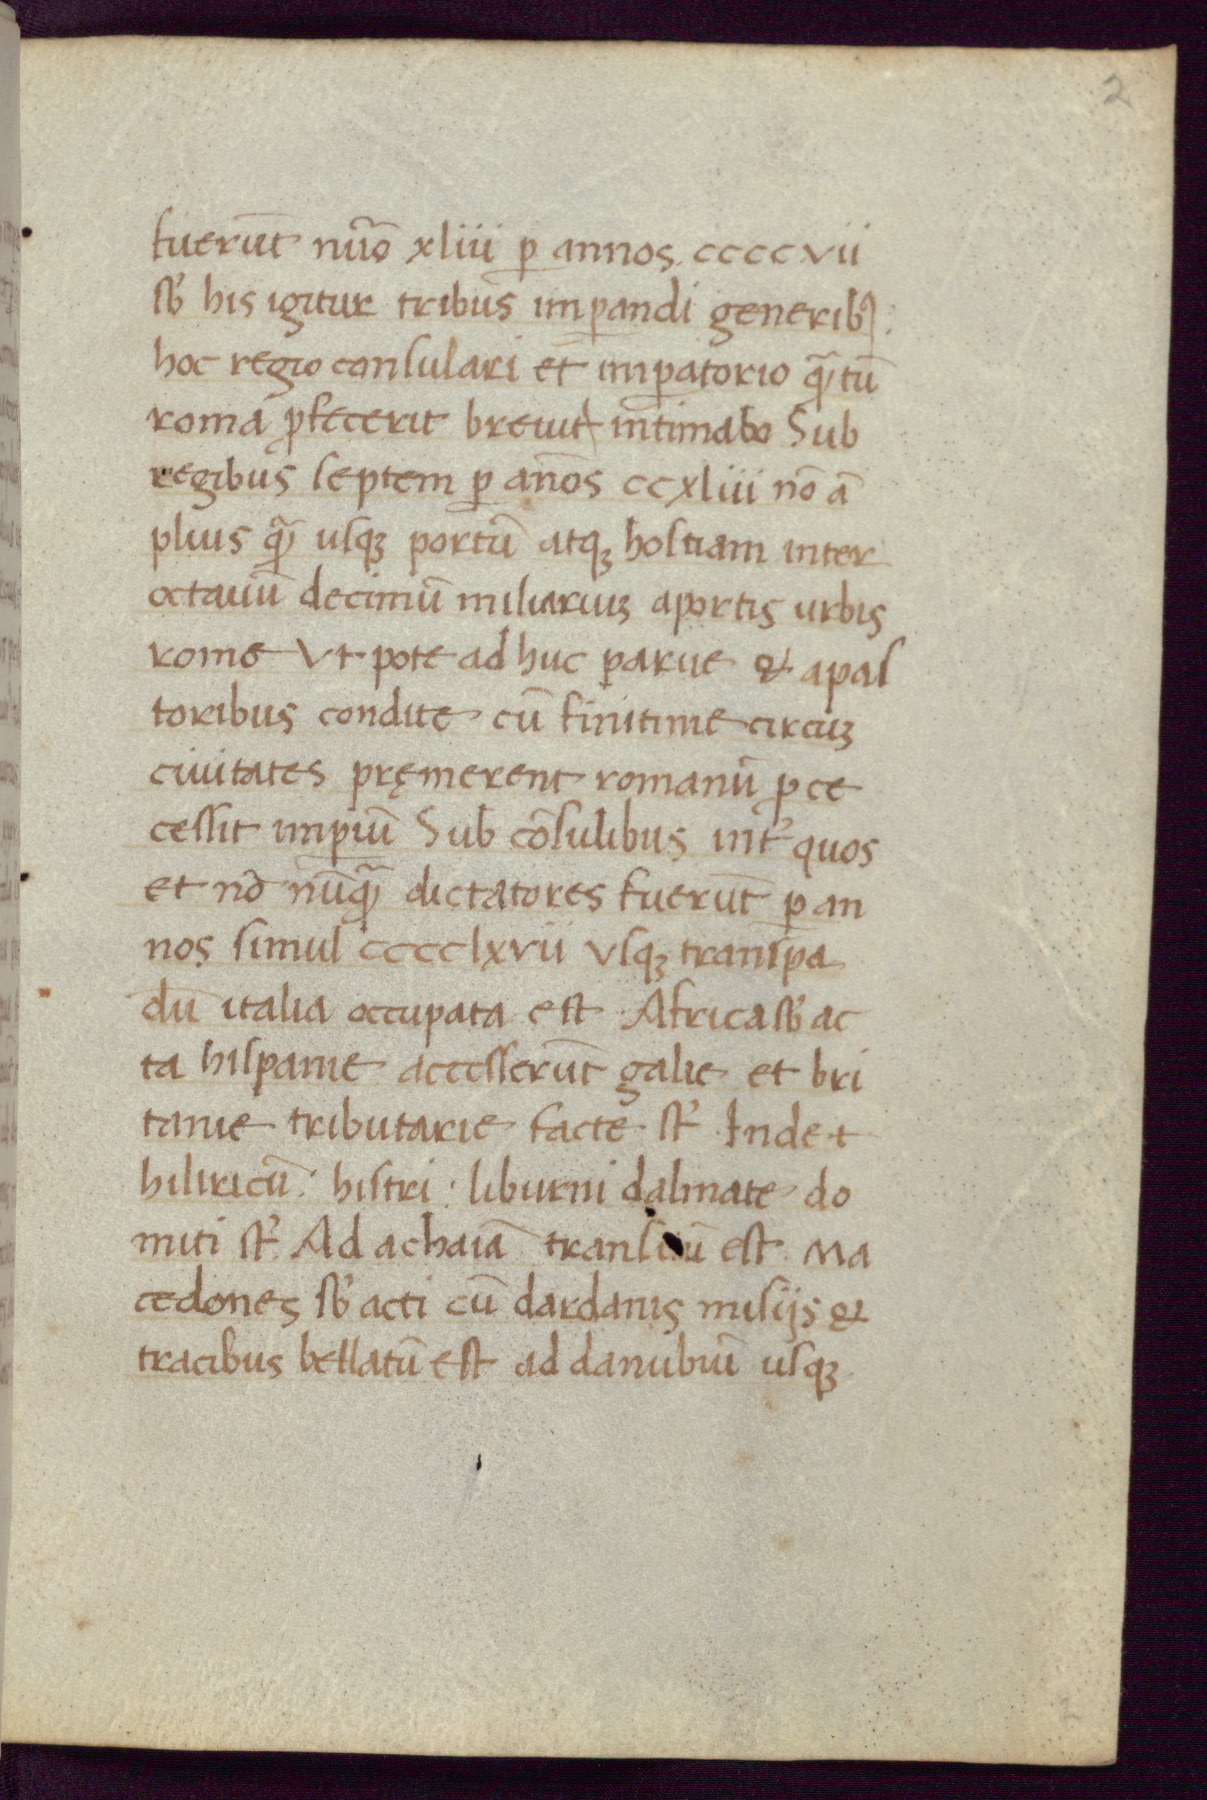 2
fuerūt nūo xliii ꝑ annos. ccccvii
sƀ his igitur tribus imꝑandi generibꝫ:
hoc regio consulari et imꝑatorio qͣ̄tū
romā ꝓfecerit breuit̄ intimabo Sub
regibus septem ꝑ anōs ccxliii nō ā
plius qͣ̄ usqꝫ portū atqꝫ hostiam inter
octauū decimū miliariuꝫ aportis urbis
rome Vt pote ad huc parue & apas
toribus condite cū finitime circuꝫ
ciuitates pręmerent romanū ꝓce
cessit imꝑiū Sub cōsulibus int̄ quos
et nō nūqͣ̄ dictatores fuerūt ꝑ an
nos simul cccclxvii Vsqꝫ transpa
dū italia occupata est Africa sƀ ac
ta hispanie accesserūt galie et bri
tanie tributarie facte st̄ Inde t
hiliricū: histri · liburni dalmate do
miti st̄. Ad achaiā transitū est. Ma
cedones sƀ acti cū dardanis misijs &
tracibus bellatū est ad danubiū usqꝫ
2